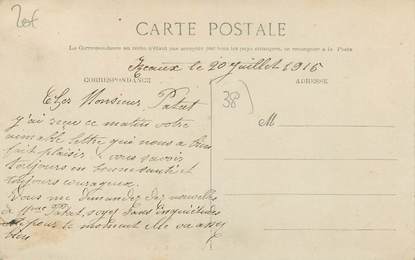 20€
CARTE POSTALE
La Correspondance au recto n'étant pas acceptée par tous les pays étrangers, se renseigner à la Poste
Sceaux le 20 Juillet 1915
CORRESPONDANCE
ADRESSE
38)
M
Cher Monsieur Patret
J'ai reçu ce matin votre
aimable lettre qui nous a bien
fait plaisir vous savoir
toujours en bonne santé et
toujours courageux.
Vous me demandez des nouvelles
de Mme Patret, soyez sans inquiétudes
pour le moment elle va assez
bien